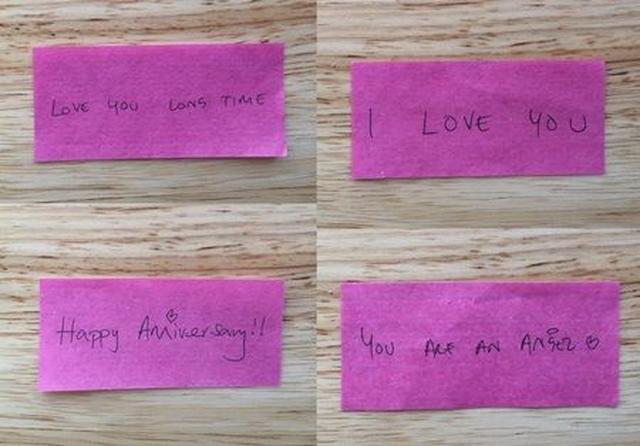 LOVE YOU LONG TIME
I LOVE YOU
Happy Anniversary!!
YOU ARE AN ANGEL